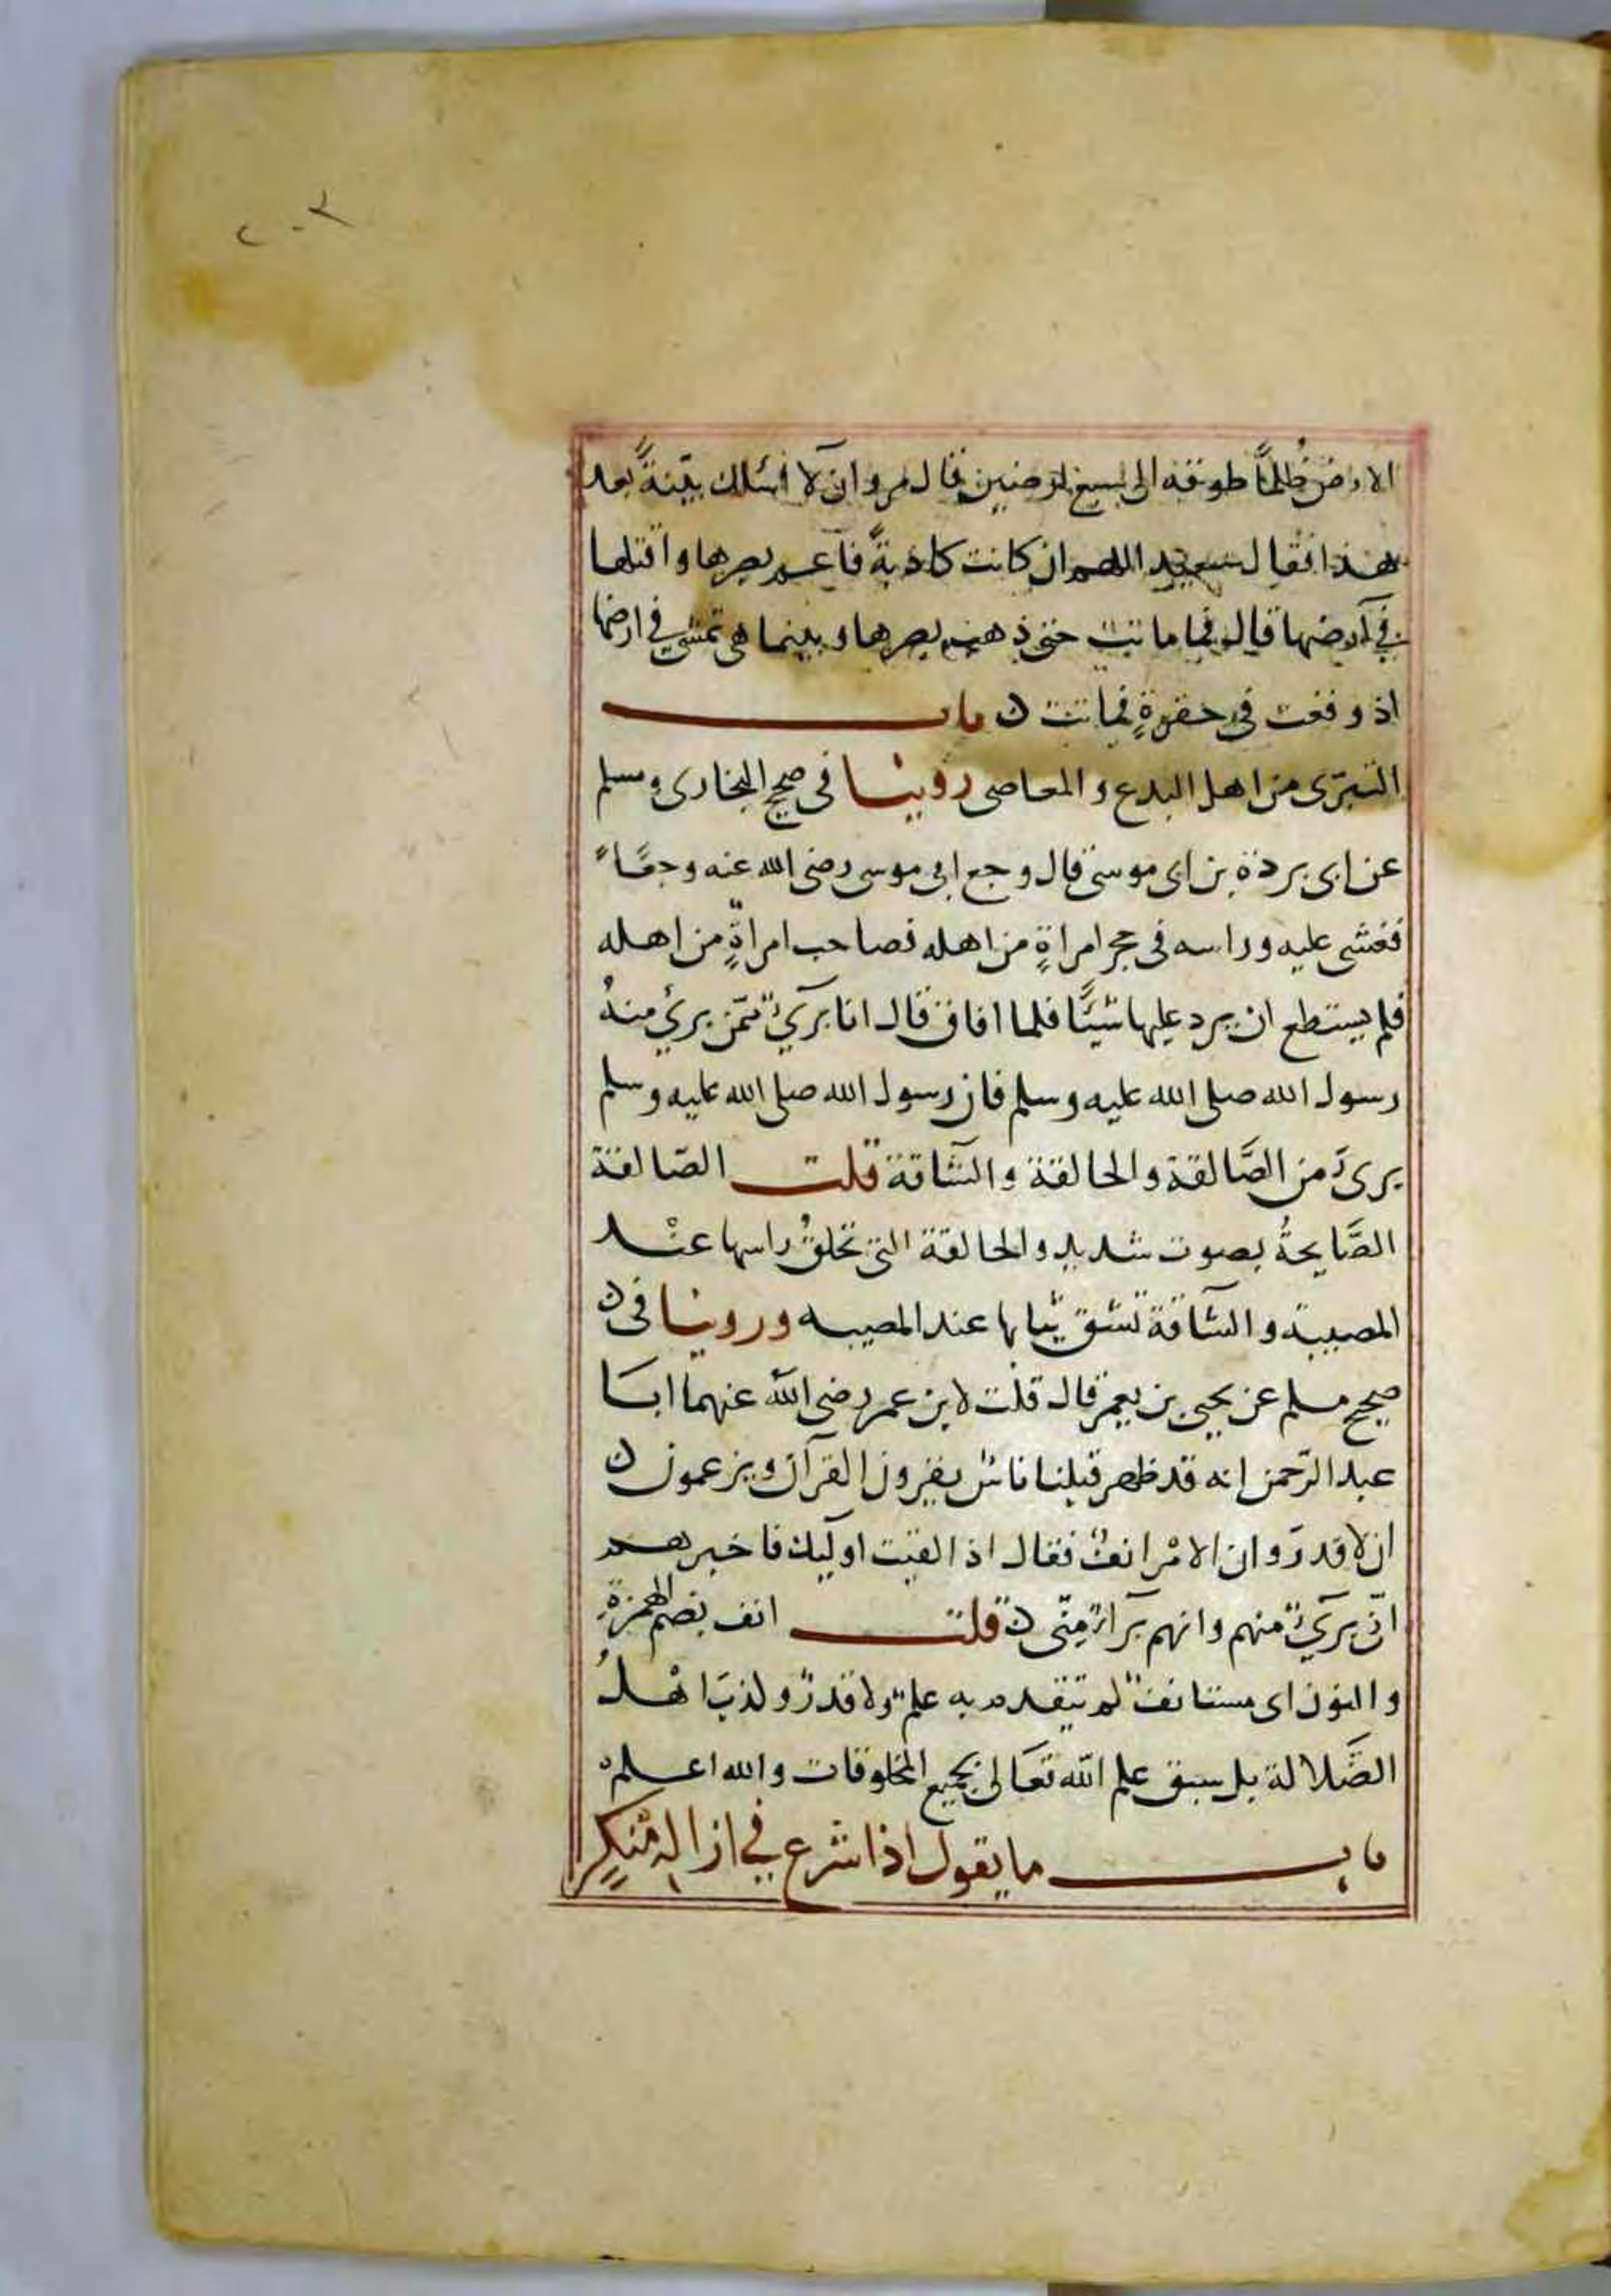 ٢٠٣
الارض ظلمًا طوقه الى سبع ارضين فقال مروان لا اسئلك بينةً بعد
هذا فقال سعيد اللهم ان كانت كاذبةً فاعم بصرها واقتلها
في ارضها قال فما ماتت حتى ذهب بصرها وبينما هى تمشى في ارضها
اذ وقعت في حفرةٍ فماتت ن باب
التبرّى من اهل البدع والمعاصى روينا في صحيح البخارى ومسلم
عن ابى بردة بن ابى موسى قال وجع ابى موسى رضى الله عنه وجعًا
فغشى عليه وراسه في حجر امراةٍ من اهله فصاحب امراةٍ من اهله
فلم يستطع ان يرد عليها شيئًا فلما افاق قال انا بَرىٌٔ ممّن برئ منهُ
رسول الله صلى الله عليه وسلم فان رسول الله صلى الله عليه وسلم
برىَٔ من الصَّالقة والحالقة والشاقة قلت الصّالقة
الصَّايحةُ بصوت شديد والحالقة التى تحلقُ راسها عنْد
المصيبة والشاقة تشق ثيابها عند المصيبه وروينا فى ن
صحيح مسلم عن يحيى بن يعمر قال قلت لابن عمر رضى الله عنهما ابَا
عبد الرّحمن انه قد ظهر قبلنا ناسٌ يقرون القرآن ويزعمون ن
ان لا قدرَ وان الامْر انفٌ فقال اذ القيت اوليك فاخبرهم
انّى برىٌٔ منهم وانهم بَرآءٌ مِنّى ن قلت انف بضم الهمزةِ
والنون اى مستانفٌ لم تتقدم به علمٌ ولا قدرٌ وكذبَ اهْلُ
الضَّلالة بل سبق علم الله تعَالى بجميع المخلوقات والله اعلم
باب ما يقول اذا شرع في ازالة مُنكرٍ